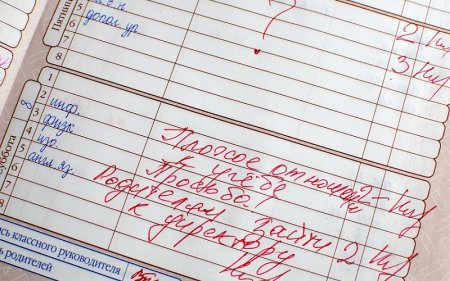 Пятница
5
6 допол. ур.
7
8
?
2
3
Суббота
1
2 инф.
3 физк
4 изо
5 англ. яз.
6
7
8
Плохое отношение
к учёбе
Просьба
Родителям зайти 2
к директору
2
ись классного руководителя
ь родителей